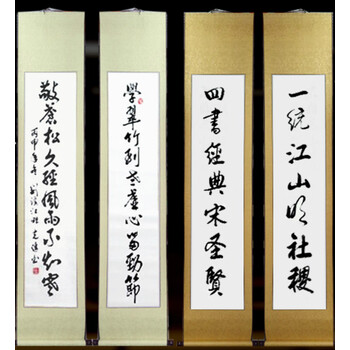 一统江山明社稷
四書經典宋圣賢
學翠竹到老虛心留勁節
敬蒼松久經風雨不知寒
丙申年